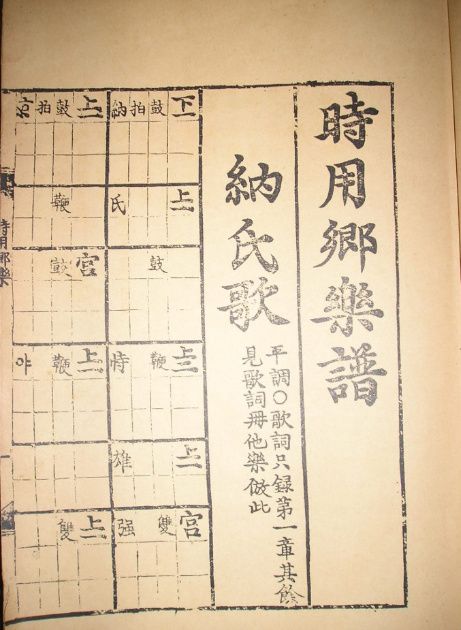 時用鄕樂譜
納氏歌
平調○歌詞只錄第一章其餘
見歌詞冊他樂倣此
下一 鼓 拍 納
上一 氏
鼓
上二 鞭 時
上一 雄
宮 雙 强
上一 鼓 拍
鞭
宮 鼓
上一 鞭
上一 雙
時用鄕樂